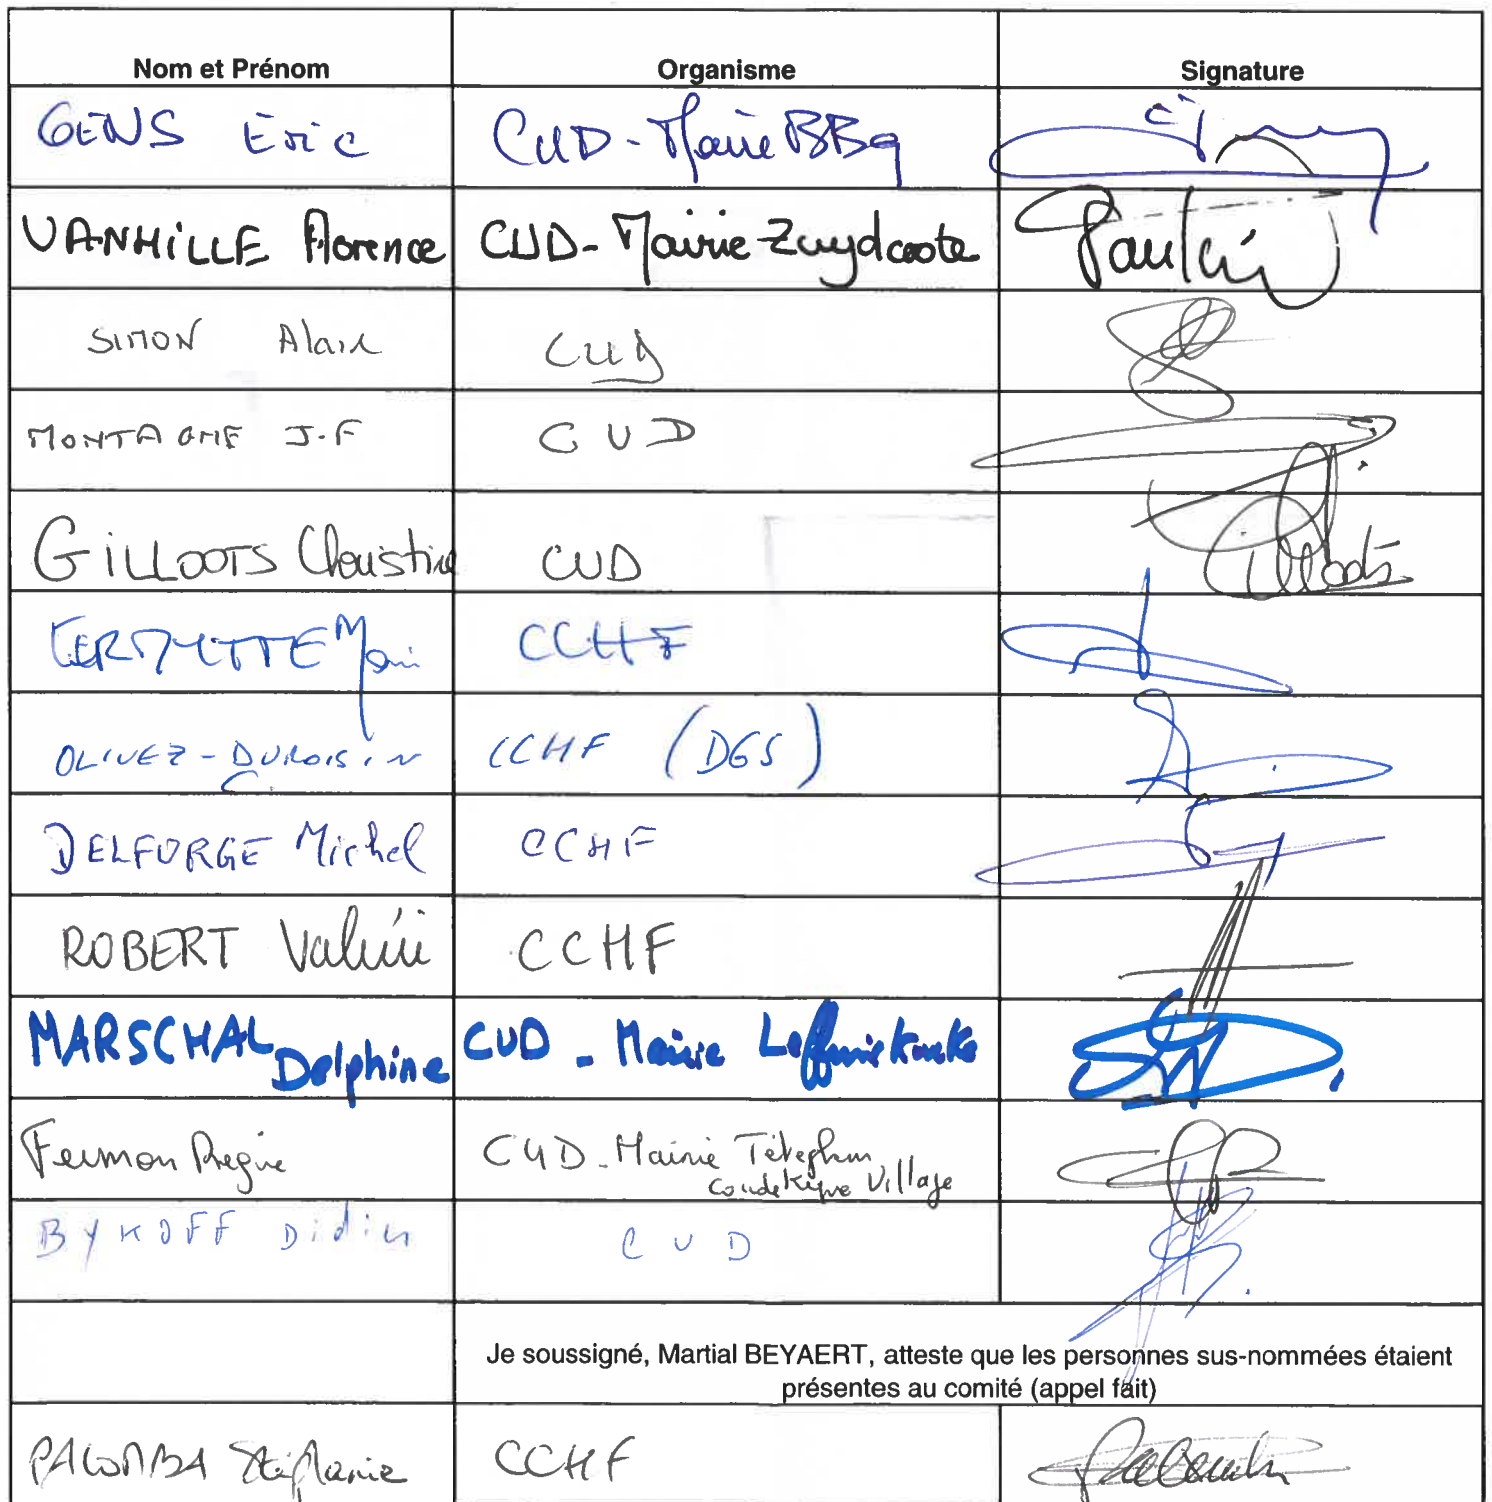 Nom et Prénom Organisme Signature
GENS Eric CUD - Mairie BBg
VANHILLE Florence CUD - Mairie Zuydcoote
SIMON Alain CUD
MONTAGNE J.F CUD
GILLOOTS Christine CUD Gilloots
Mari CCHF
OLIVEZ - CCHF (DGS)
DELFORGE Michel CCHF
ROBERT Valérie CCHF
MARSCHAL Delphine CUD - Mairie Leffrinckoucke
Fermon Régine CUD - Mairie Téteghem
Coudekerque Village
BYKOFF Didier CUD
Je soussigné, Martial BEYAERT, atteste que les personnes sus-nommées étaient
présentes au comité (appel fait)
PALOMBA Stéphanie CCHF